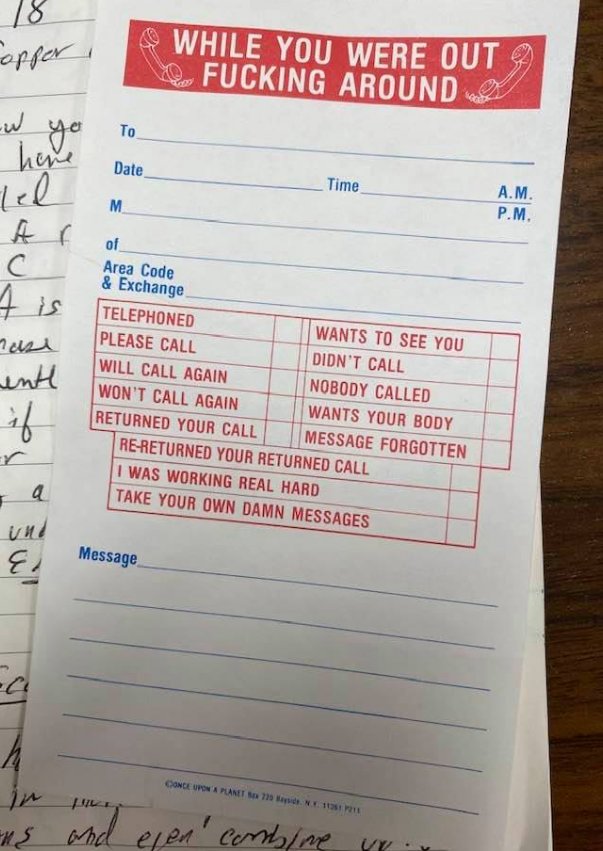 WHILE YOU WERE OUT
FUCKING AROUND
To
Date Time A.M.
P.M.
M
of
Area Code
& Exchange
TELEPHONED
PLEASE CALL
WILL CALL AGAIN
WON'T CALL AGAIN
RETURNED YOUR CALL
WANTS TO SEE YOU
DIDN'T CALL
NOBODY CALLED
WANTS YOUR BODY
MESSAGE FORGOTTEN
RE-RETURNED YOUR RETURNED CALL
I WAS WORKING REAL HARD
TAKE YOUR OWN DAMN MESSAGES
Message
©ONCE UPON A PLANET Box 220 Bayside, N.Y. 11361 P211
18
have
A
C
A is
if
a
in
and even combine